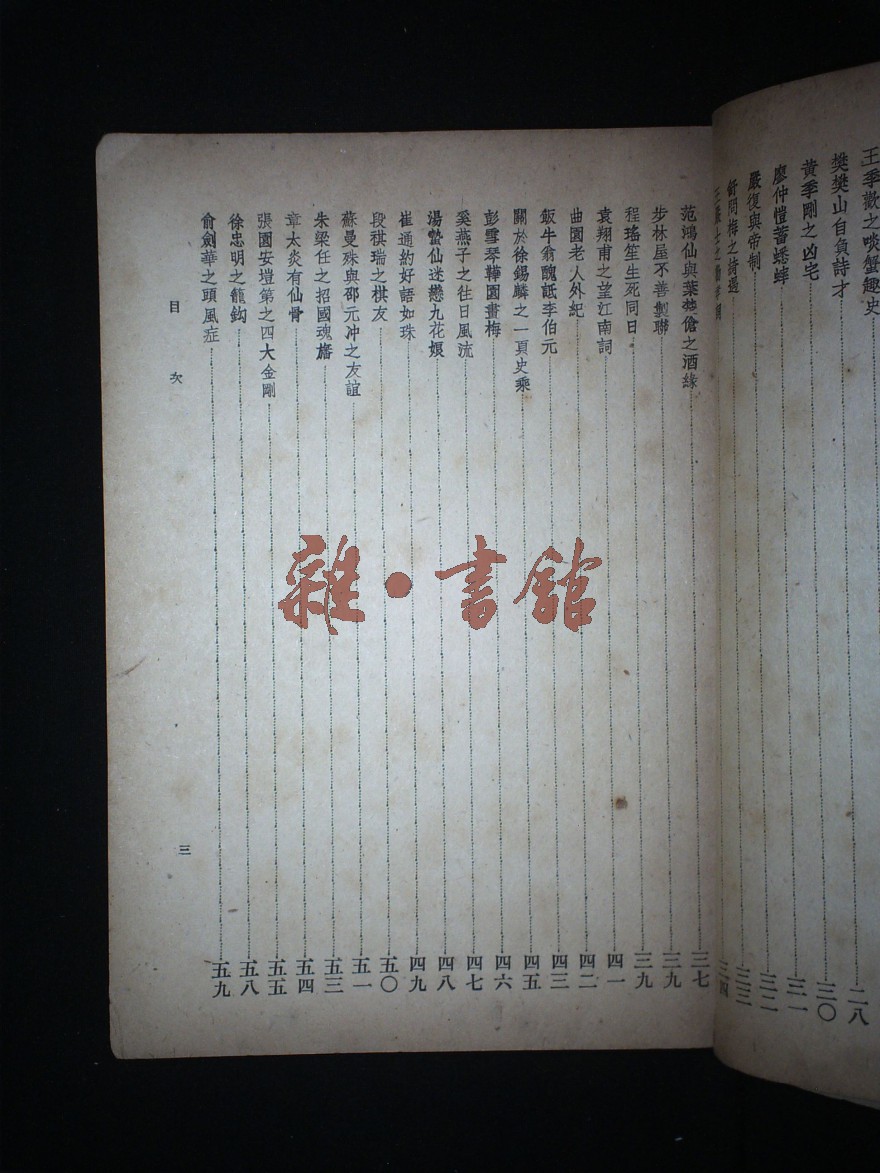 王季歡之啖蟹趣史⋯⋯二八
樊樊山自負詩才⋯⋯三〇
黃季剛之凶宅⋯⋯三一
廖仲愷蓄蟋蟀⋯⋯三二
嚴復與帝制⋯⋯三三
之詩⋯⋯三四
范鴻仙與葉楚傖之酒緣⋯⋯三七
步林屋不善製聯⋯⋯三九
程瑤笙生死同日⋯⋯三九
袁翔甫之望江南詞⋯⋯四一
曲園老人外紀⋯⋯四二
飯牛翁醜詆李伯元⋯⋯四三
關於徐錫麟之一頁史乘⋯⋯四五
彭雪琴鞾園畫梅⋯⋯四六
奚燕子之往日風流⋯⋯四七
湯蟄仙迷戀九花娘⋯⋯四八
崔通約好語如珠⋯⋯四九
段祺瑞之棋友⋯⋯五〇
蘇曼殊與邵元冲之友誼⋯⋯五一
朱梁任之招國魂旛⋯⋯五三
章太炎有仙骨⋯⋯五四
張園安塏第之四大金剛⋯⋯五五
徐忠明之龍鈎⋯⋯五八
俞劍華之頭風症⋯⋯五九
目次
三
雜·書館